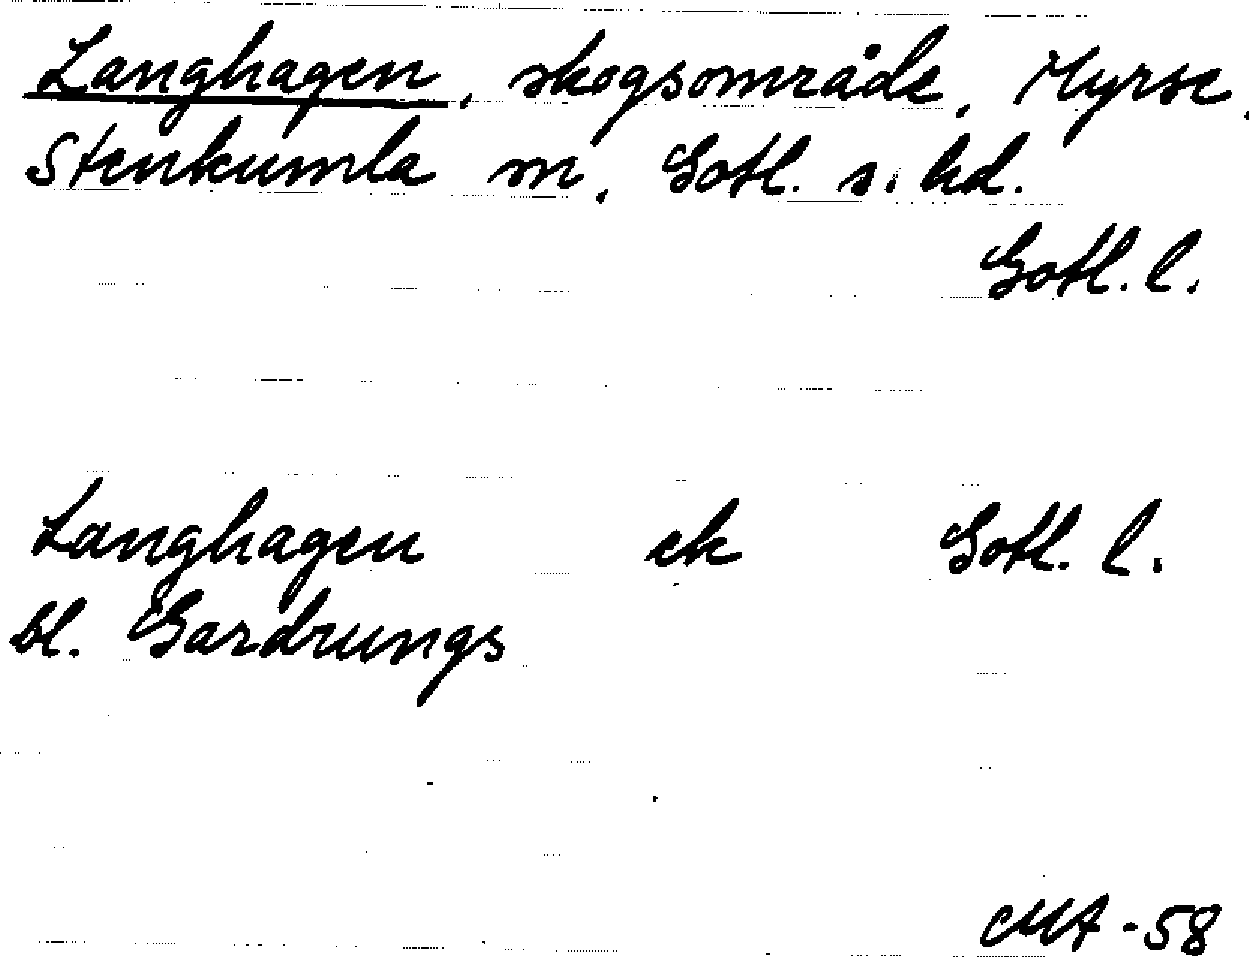 Langhagen, skogsområde, Myrse,
Stenkumla sn, Gotl. s. hd.
Gotl. l.
Langhagen ek Gotl. l.
bl. Gardrungs
MA -58